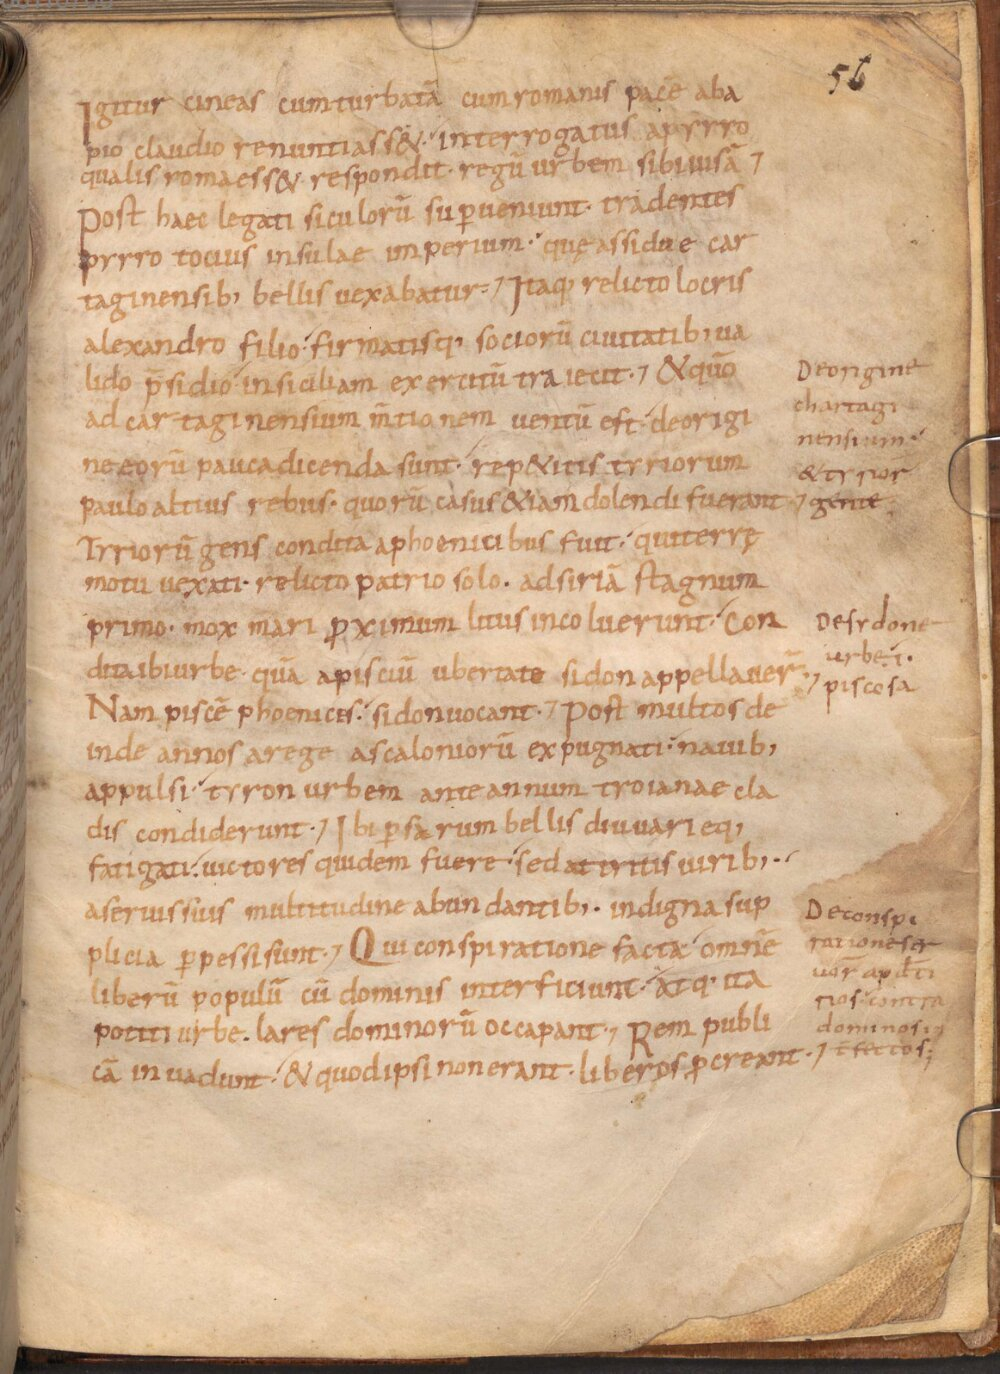 56
Igitur cineas cum turbatā cum romanis pacē ab a
pio claudio renuntiass& interrogatus apyrro
qualis romaess& respondit · regū urbem sibi uisā ⁊
Post haec legati siculorū suꝑueniunt · tradentes
pyrro tocius insulae imperium · quę assidue car
taginensib; bellis uexabatur ⁊ Itaq; relicto locris
alexandro filio · firmatisq; sociorū ciuitatib; ua
lido p̄sidio in siciliam exercitū traiecit · ⁊ &quō
ad cartaginensium m̄tionem uentū est · de origi
ne eorū pauca dicenda sunt · rep&itis tyriorum
paulo altius rebus · quorū casus &iam dolendi fuerant ⁊
Tyriorū gens condita a phoenicibus fuit · qui terrę
motu uexati · relicto patrio solo · ad siriā stagnum
primo · mox mari ꝓximum litus incoluerunt · Con
dita ibi urbe · quā a pisciū ubertate sidon appellauer̄ · ⁊
Nam piscē phoenices · sidon uocant · ⁊ Post multos de
inde annos a rege ascaloniorū expugnati · nauib;
appulsi · tyron urbem ante annum troianae cla
dis condiderunt · ⁊ Ibi ꝑsarum bellis diu uarieq;
fatigati · uictores quidem fuere · sed attritis uirib; ·
a seruis suis multitudine abundantib; · indigna sup
plicia ꝑpessi sunt · ⁊ Qui conspiratione facta omnē
liberū populū cū dominis interficiunt · atq; ita
potiti urbe · lares dominorū occupant ⁊ Rem publi
cā inuadunt · & quod ipsi non erant · liberos ꝓcreant · ⁊
De origine
chartagi
nensium ·
& tyrior̄
gente ·
De sydone
urbe · i ·
piscosa
De conspi
ratione ser
uor̄ ap̄d ti
rios contra
dominos i
t̄fectos ;